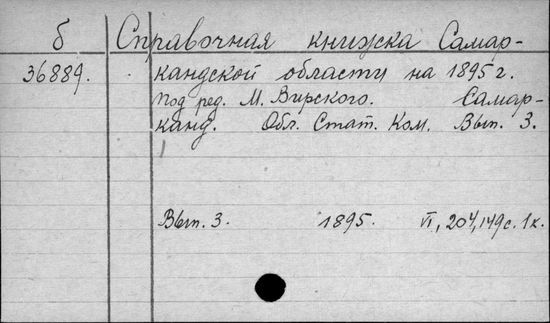 б Справочная книжка Самар-
36889. кандской области на 1895 г.
под ред. М. Вирского. Самар-
канд. Обл. Стат. Ком. Вып. 3.
Вып. 3. 1895. VI, 204, 149 с. 1 к.